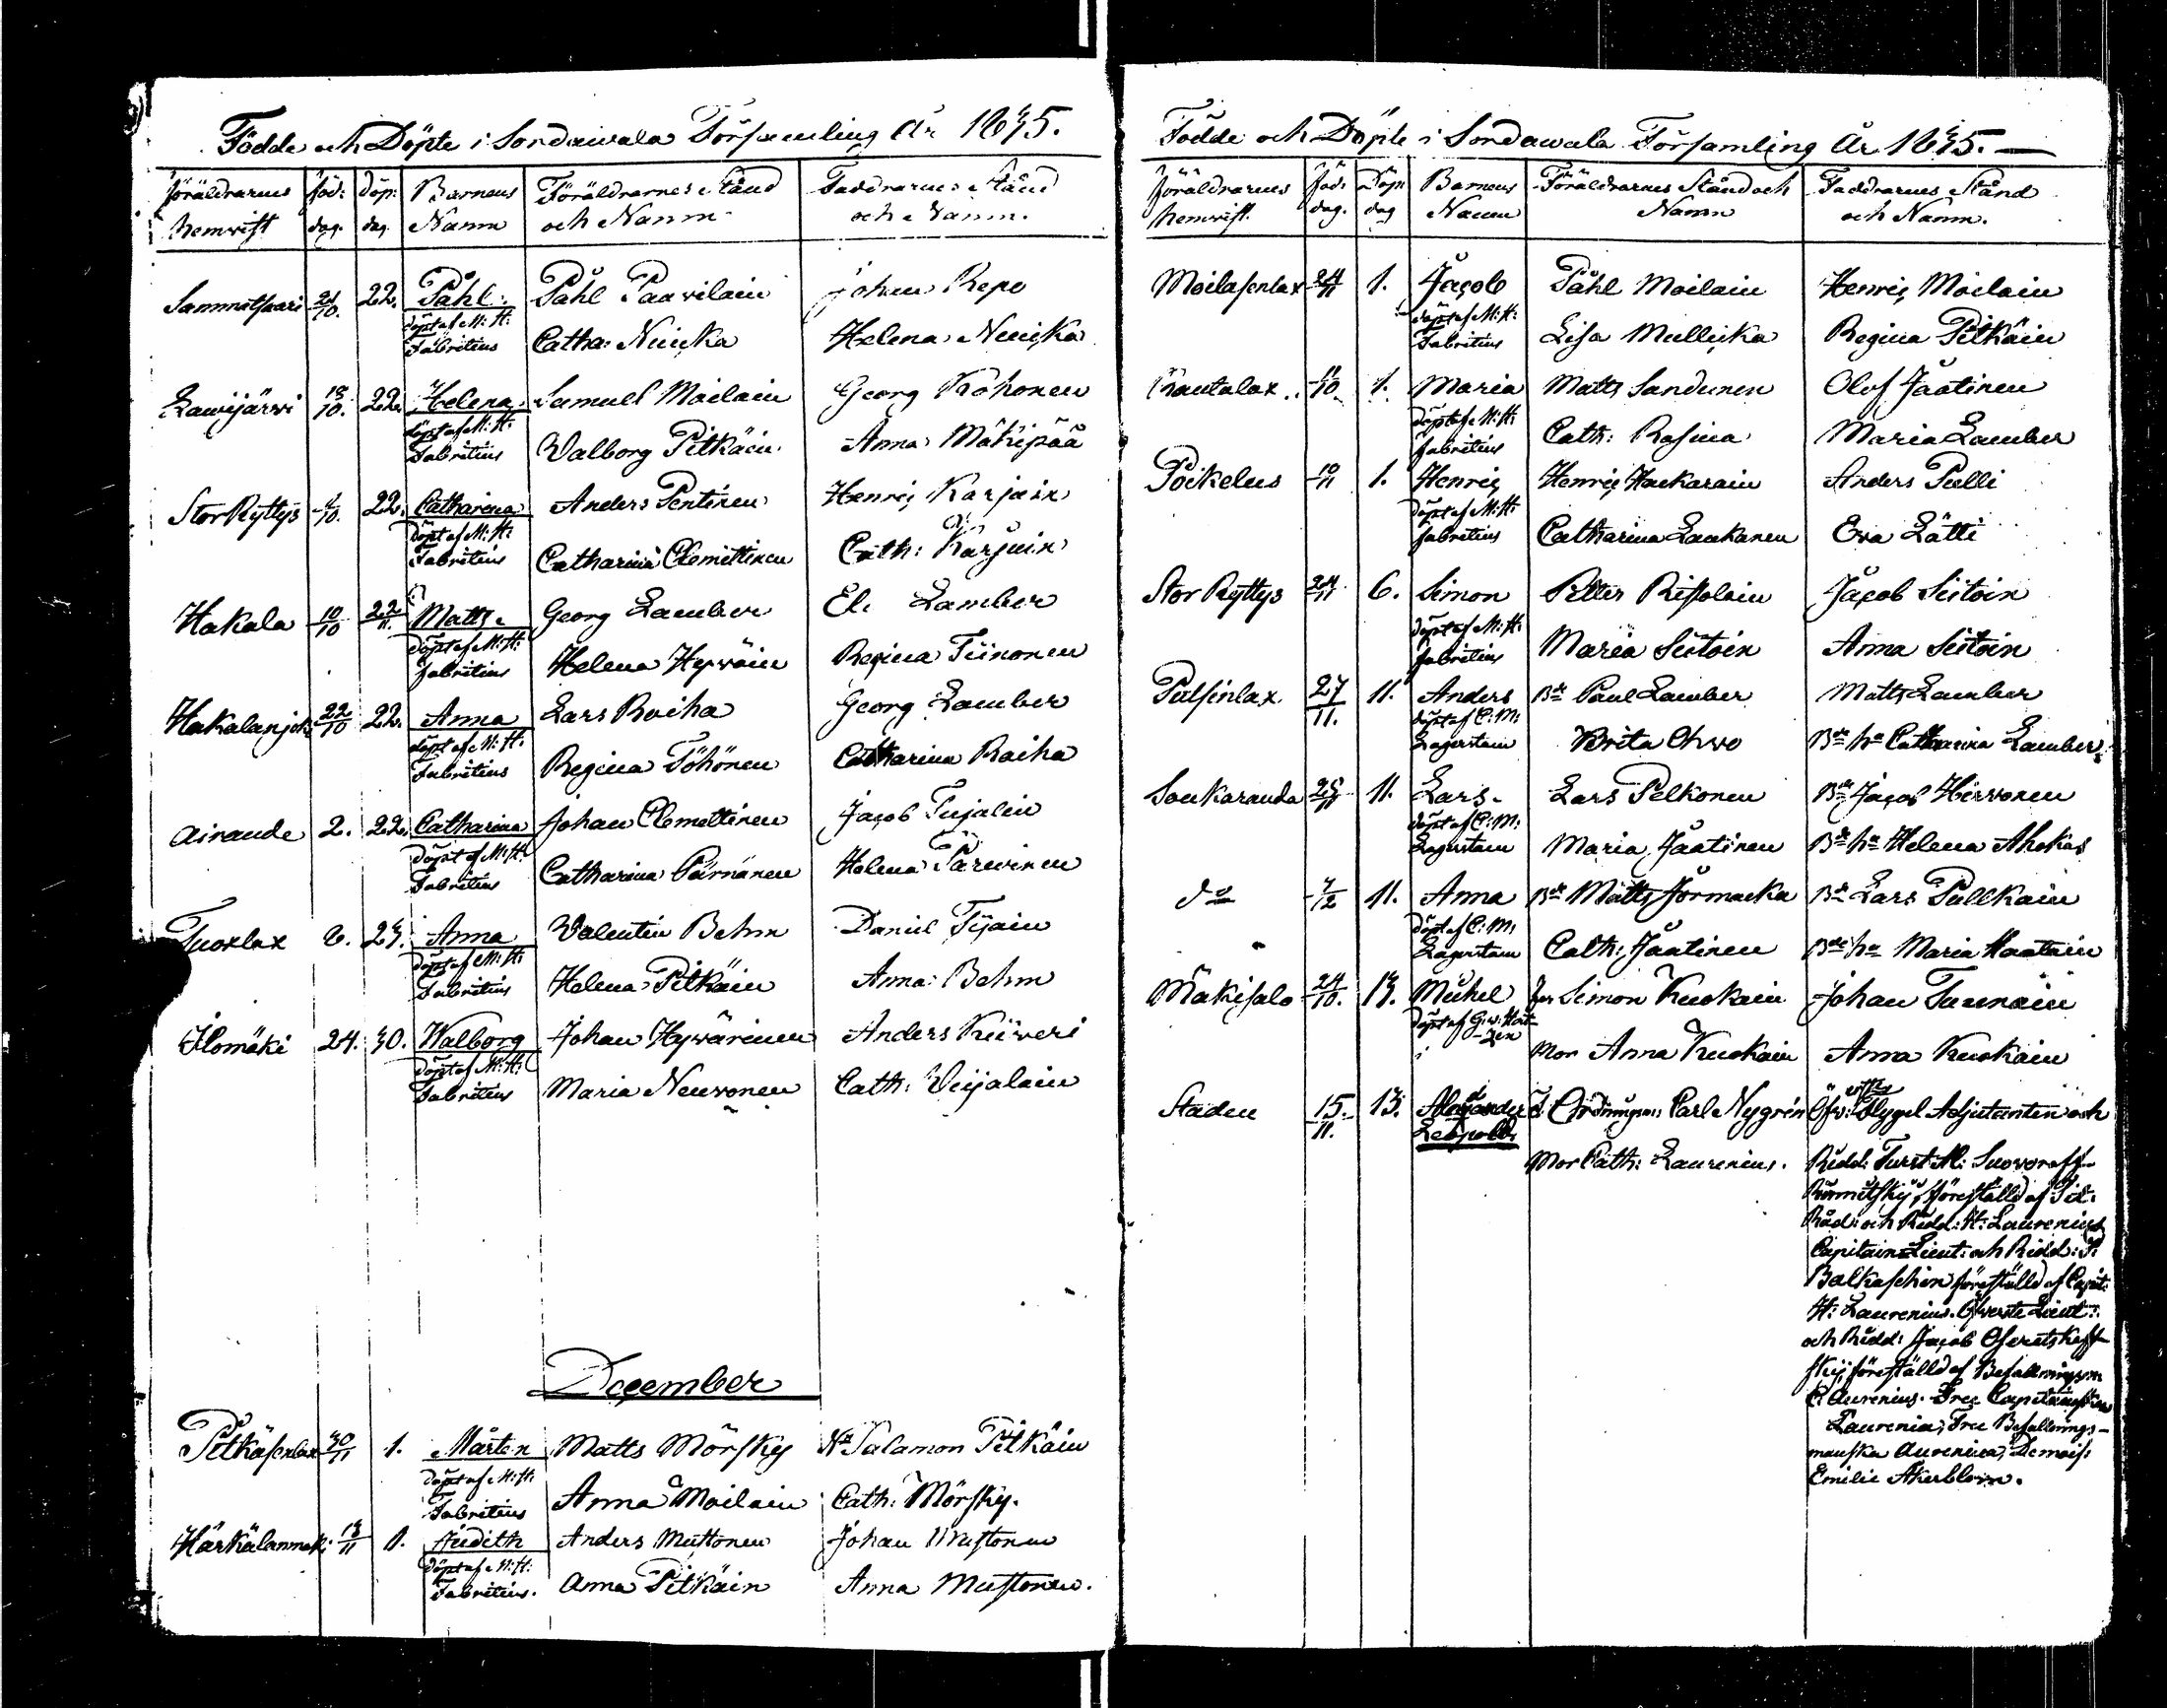 Födde och Döpte i Sordawala Församling År 1835.
Föräldrarnes hemvist | föd: dag. | döp: dag | Barnens Namn | Föräldrarnes Stånd och Namn | Faddrarnes Stånd och Namn.
Sammatsaari 21/10. 22. Påhl. Påhl Paavilain Johan Repo
döpt af M: H: Fabritius Catha: Nuicka Helena Nuicka
Lavijärwi 18/10. 22. Helena Samuel Moilain Georg Köhonen
döpt af M: H: Fabritius Walborg Pitkäin Anna Mäkipää
Stor Ryttys 4/10. 22. Catharina Anders Pentinen Henric Karjain
döpt af M: H: Fabritius Catharina Clemittinen Cath: Karjain
Hakala 10/10 22/11. Matts. Georg Lamber El. Lamber
döpt af M: H: fabritius Helena Hyväin Regina Tiinonen
Hakalanjoki 22/10 22. Anna Lars Roiha Georg Lamber
döpt af M: H: Fabritius Regina Töhönen Catharina Roiha
Airande 2. 22. Catharina Johan Clemettinen Jacob Tujalin
döpt af M: H: Fabritius Catharina Pärnänen Helena Pärevinen
Tuoxlax 6. 23. Anna Valentin Behm Daniel Tijain
döpt af M: H: Fabritius Helena Pitkäin Anna Behm
Ilomäki 24. 30. Walborg Johan Hyvärinen Anders Kiiveri
döpt af M: H: Fabritius Maria Neuvonen Cath: Veijalain
December
Pitkäsenlax 30/11 1. Mårten Matts Mörsky Nd Salamon Pitkäin
döpt af M: H: Fabritius Anna Moilain Cath: Mörsky.
Härkälänmäki 13/11 1. Judith Anders Mustonen Johan Mustonen
döpt af M: H: Fabritius. Anna Pitkäin Anna Mustonen.
Födde och Döpte i Sordawala Församling År 1835.
Föräldrarnes hemvist. | Föd: dag. | Döp: dag | Barnens Namn | Föräldrarnes Stånd och Namn | Faddrarnes Stånd och Namn.
Moilasenlax 24/11 1. Jacob Påhl Moilain Henric Moilain
döpt af M: H: Fabritius Lisa Mullicka Regina Pitkäin
Rautalax 11/10. 1. Maria Matts Sandunen Olof Jäätinen
döpt af M: H: fabritius Cath: Rasina Maria Lamber
Poikelus 10/11 1. Henric Henric Hackarain Anders Pulli
döpt af M: H: fabritius Catharina Laukanen Eva Lätti
Stor Ryttys 24/11 6. Simon Petter Rissolain Jacob Siitoin
döpt af M: H: fabritius Maria Siitoin Anna Siitoin
Pulsinlax 27/11. 11. Anders Bd Paul Lamber Matts Lamber
döpt af C: M: Lagerstam Brita Ohvo Bde ha Catharina Lamber
Soukaranda 28/11 11. Lars. Lars Pelkonen Bd Jacob Hirvonen
döpt af C: M: Lagerstam Maria Jäätinen Bde ha Helena Ahokas
do 4/12 11. Anna Bd Matts Jormacka Bd Lars Pullkain
döpt af C: M: Lagerstam Cath: Jäätinen Bde ha Maria Haatain
Mäkisalo 24/10. 13. Michel far Simon Kuokain Johan Tuunain
Mor Anna Kuokain Anna Kuokain
Staden 15/11. 13. Alexander Leopold F. Ordningsm: Carl Nygrén Öfv: Flygel Adjutanten och
Mor Cath: Laurenius. Ridd: Furst Al: Suvoroff
Rumnitskij, föreställd af Tit:
Råd: och Ridd: H: Laurenius,
Capitain Lieut: och Ridd: P.
Balkaschin föreställd af Capit:
H: Laurenius. Öfverste Lieut:
och Ridd: Jacob Oseretskeff
skij, föreställd af Befallningsm
Laurenius. Fru Capitainskan
Laurenia, Fru Befallnings-
manska Aurenius, Demois:
Emilie Åkerblom.